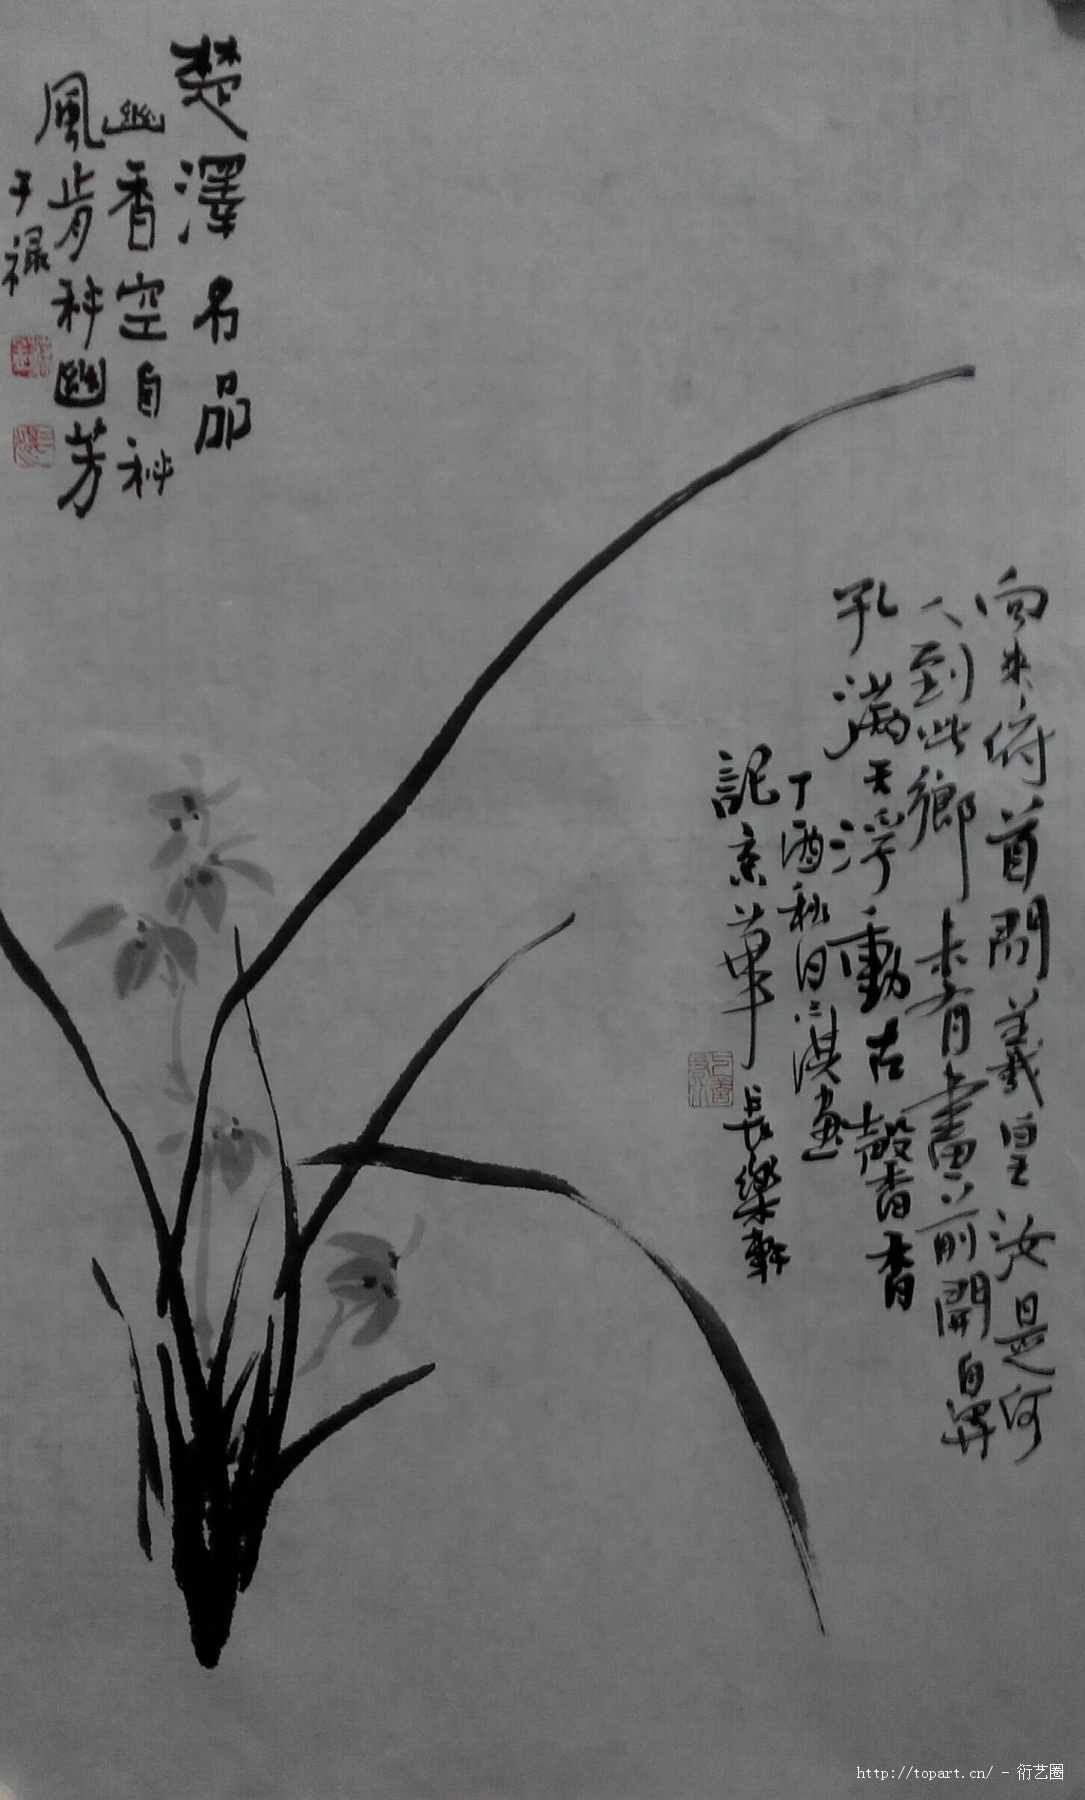 向来俯首問羲皇汝是何
人到此鄉未有畫前開鼻
孔滿天浮動古馨香
丁酉秋日淇画
記京華長樂軒
楚澤名品
幽香空自秘
風肯秘幽芳
禄
http://topart.cn/ - 衍艺圈